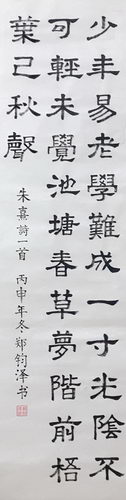 少年易老學難成一寸光陰不
可輕未覺池塘春草夢階前梧
葉已秋聲
朱熹詩一首 丙申年冬郑钧泽书